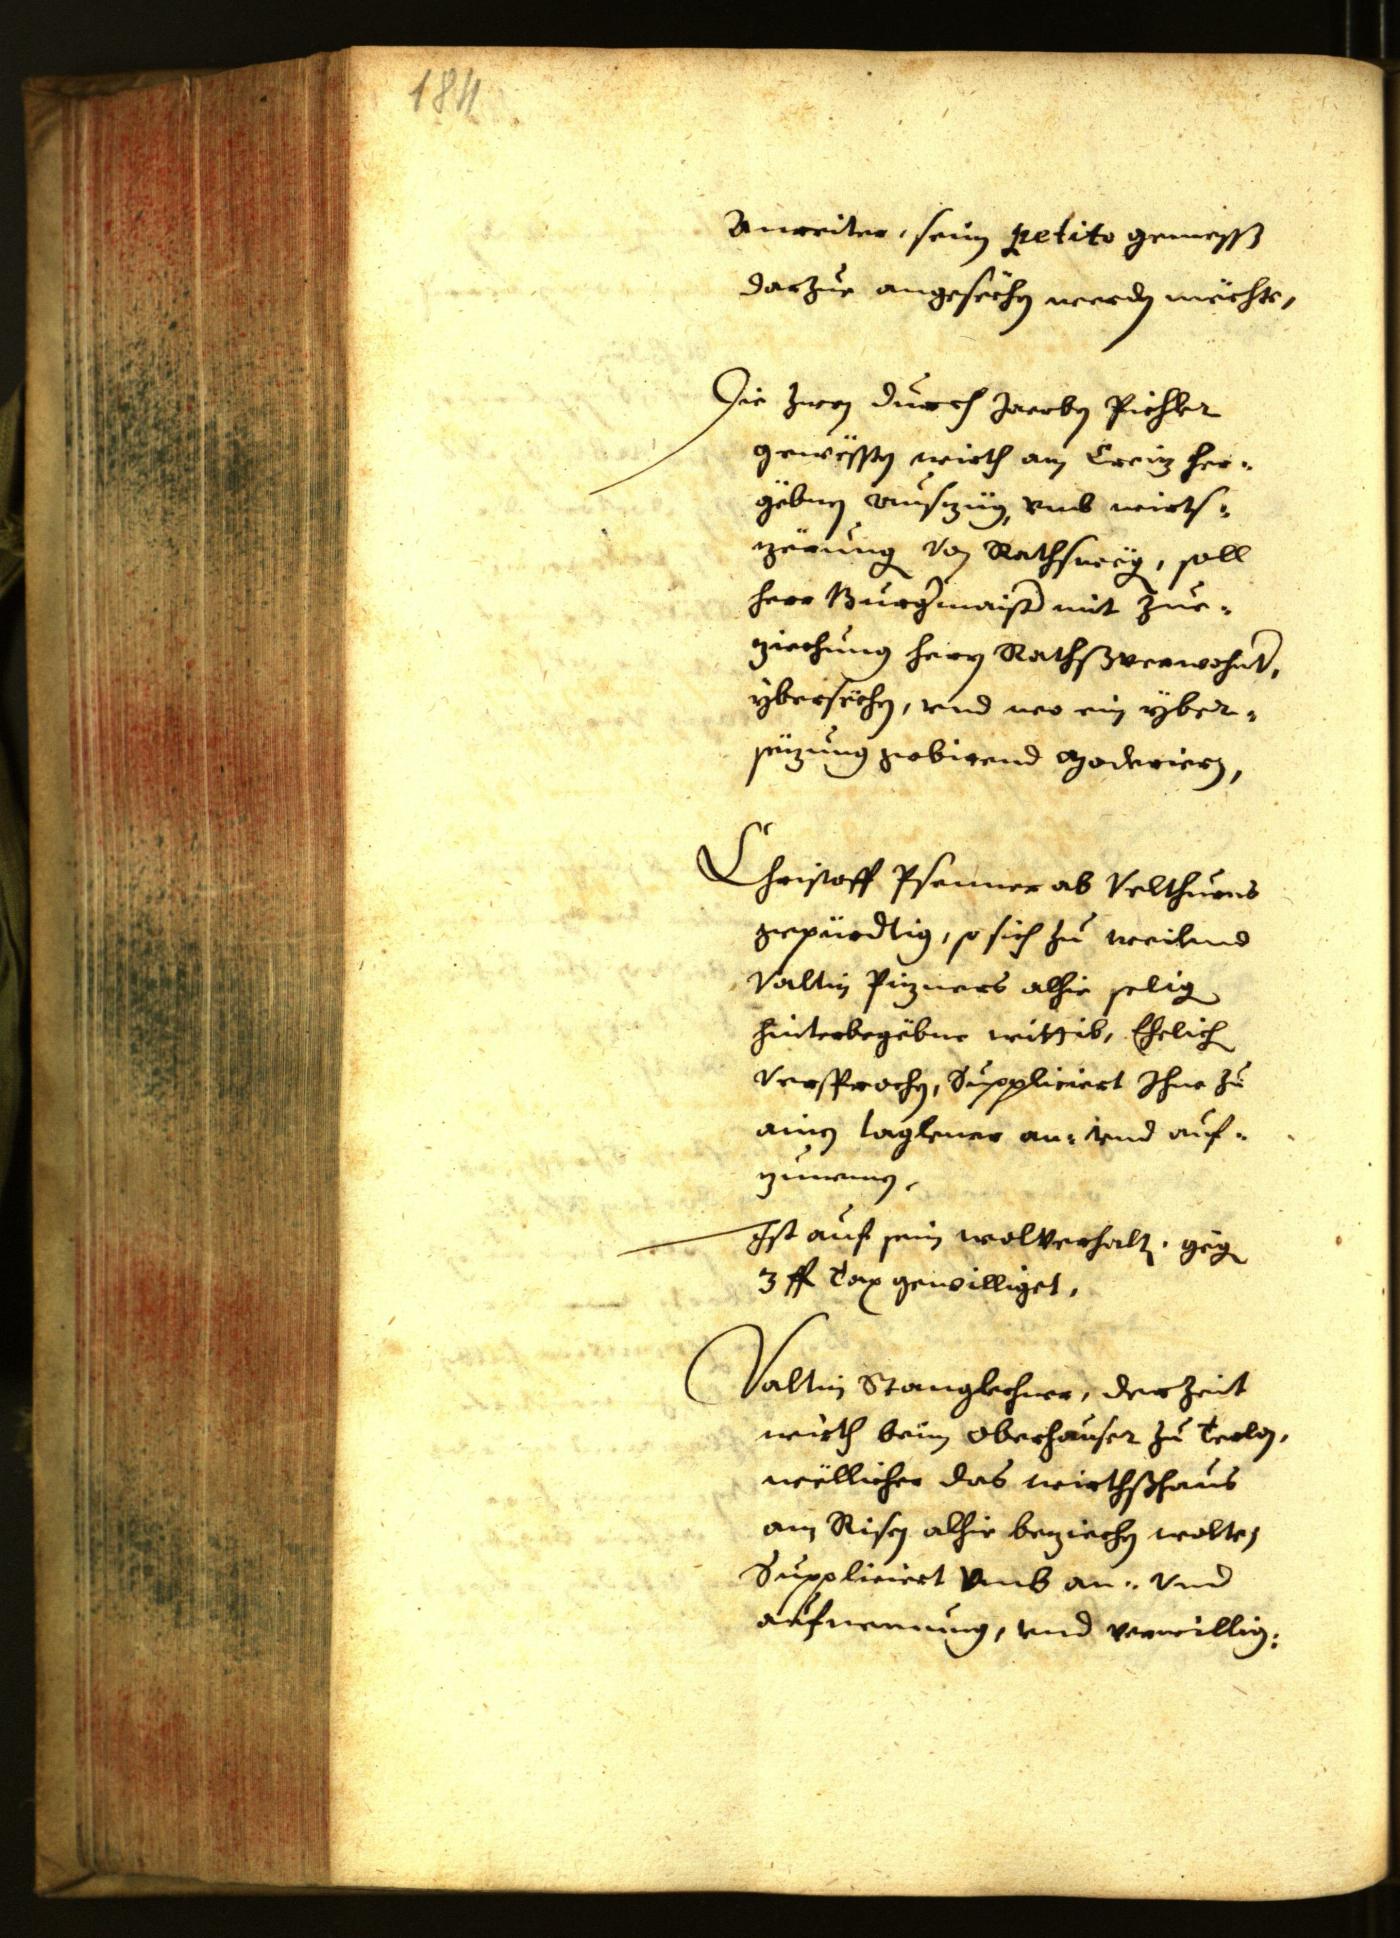 184
Anreiter, sein petito gemeß
darzue angesechen werden möchte,
Die zwen durch Jacoben Pichler
gewëßten wirth am Creiz her-
gëbnen ausszüg, umb wirts-
zërung von Rathswëg, soll
herr Burgermaister mit zue-
ziechung herrn Rathßverwohnter,
ÿbersëchen, und wo ein ÿber-
sëzung probirend moderiern,
Christoff Psenner ab Velthurns
gepürdtig, so sich zu weilend
Valtin Pinzners alhie selig
hinterbegëbne wittib, Ehelich
versprochen, Suppliciert Ihne zu
ainen taglener an- und auf-
zunemen.
Ist auf sein wolverhalten, gegen
3 fl Tax gewilliget,
Valtin Stanglechner, der Zeit
wirth beim Oberhauser zu Terlan,
wëllicher das wirthßhaus
am Risen alhie beziechen wolte,
Suppliciert Umb an- Und
aufnemung, und verwillig-